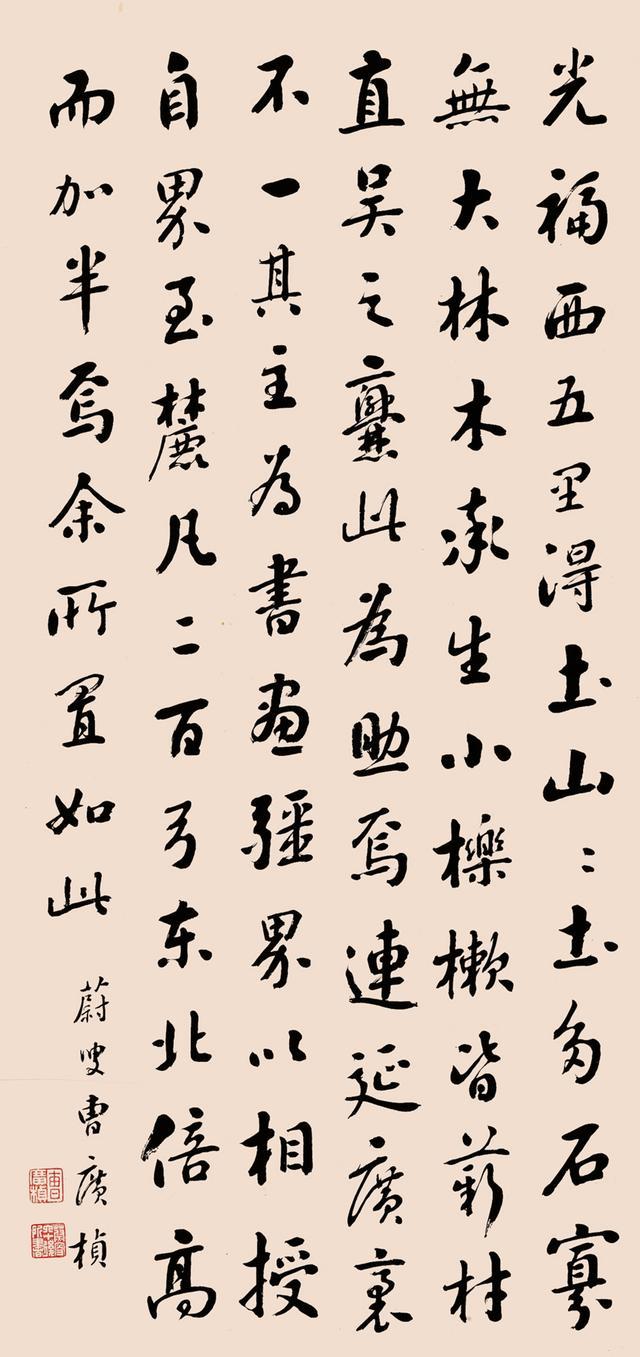 光福西五里得土山〻土多石寡
無大林木率生小櫟樕皆薪材
直吳之爨此為助焉連延廣袤
不一其主為書畫疆界以相授
自界至麓凡二百弓東北倍高
而加半焉余所置如此
蔚叟曹廣楨
曹廣楨